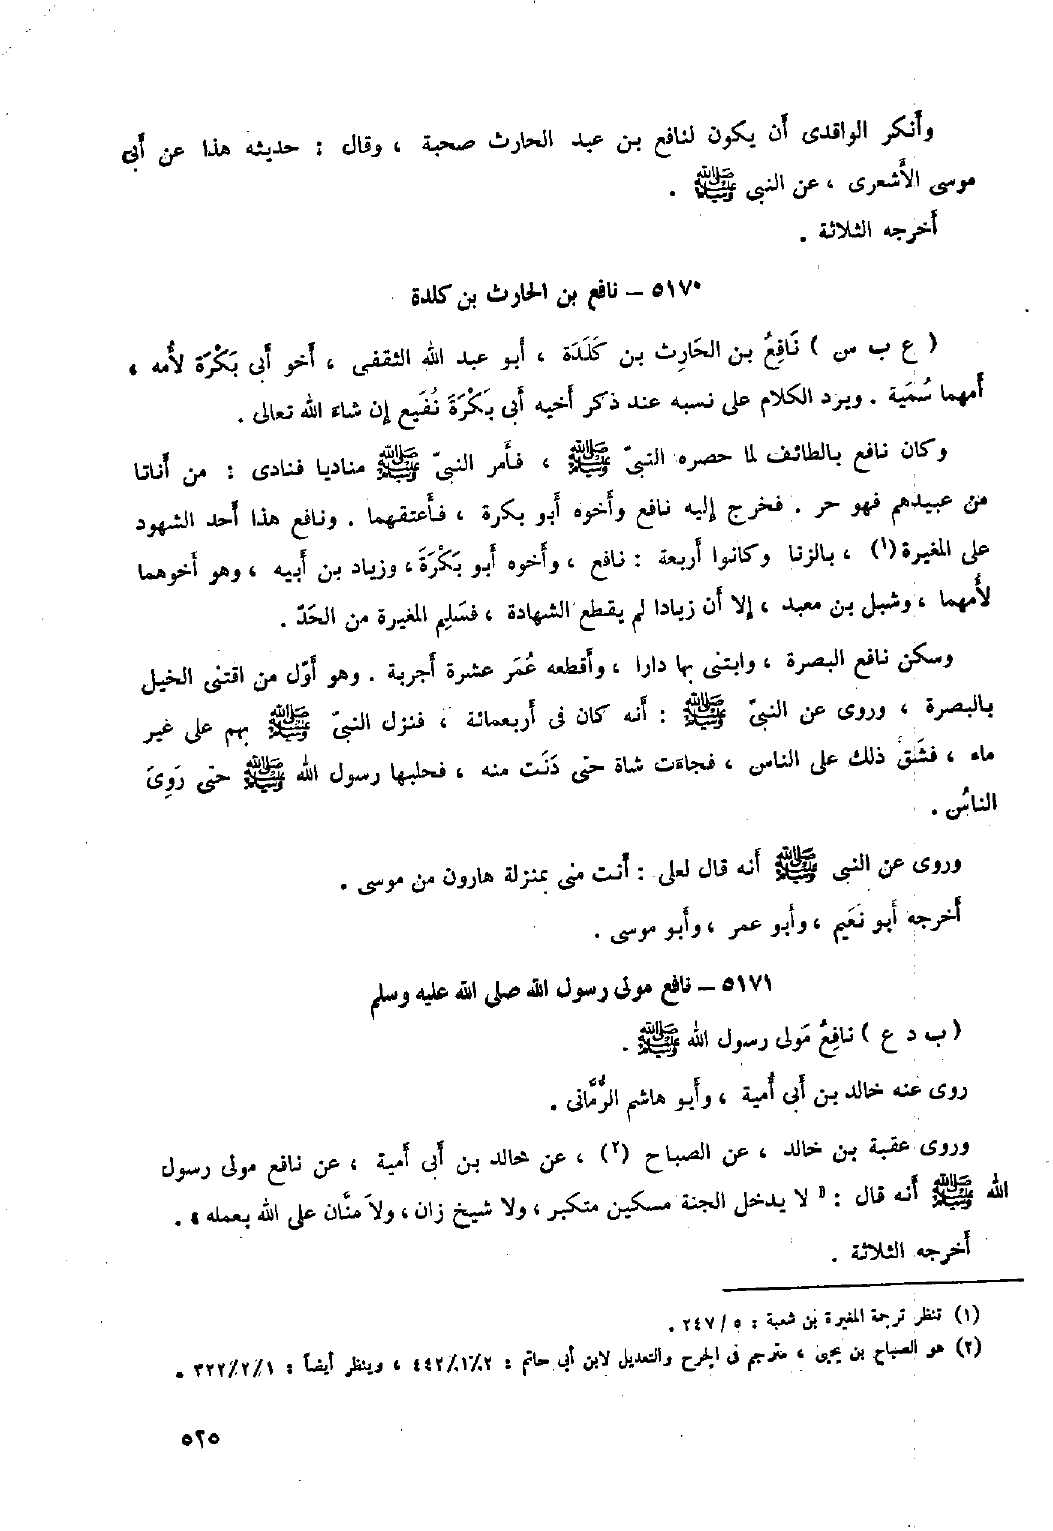 وأَنكر الواقدى أَن يكون لنافع بن عبد الحارث صحبة ، وقال : حديثه هذا عن أَبى
موسى الأَشعرى ، عن النبى ﷺ .
أَخرجه الثلاثة .
٥١٧٠ – نافع بن الحارث بن كلدة
( ع ب س ) نَافِعُ بن الحَارِث بن كَلَدَة ، أَبو عبد الله الثقفى ، أَخو أَبى بَكْرَة لأُمه ،
أَمهما سُمَية . ويرد الكلام على نسبه عند ذكر أَخيه أَبى بَكْرَةَ نُفَيع إِن شاءَ الله تعالى .
وكان نافع بالطائف لما حصره النبىّ ﷺ ، فأَمر النبىّ ﷺ مناديا فنادى : من أَتانا
من عبيدهم فهو حر . فخرج إِليه نافع وأَخوه أَبو بكرة ، فأَعتقهما . ونافع هذا أَحد الشهود
على المغيرة(١) ، بالزنا وكانوا أَربعة : نافع ، وأَخوه أَبو بَكْرَةَ ، وزياد بن أَبيه ، وهو أَخوهما
لأُمهما ، وشبل بن معبد ، إِلا أَن زيادا لم يقطع الشهادة ، فسَلِم المغيرة من الحَدّ .
وسكن نافع البصرة ، وابتنى بها دارا ، وأَقطعه عُمَر عشرة أَجربة . وهو أَوّل من اقتنى الخيل
بالبصرة ، وروى عن النبىّ ﷺ : أَنه كان فى أَربعمائة ، فنزل النبىّ ﷺ بهم على غير
ماء ، فشَقَّ ذلك على الناس ، فجاءَت شاة حتى دَنَت منه ، فحلبها رسول الله ﷺ حتى رَوِىَ
الناسُ .
وروى عن النبى ﷺ أَنه قال لعلى : أَنت منى بمنزلة هارون من موسى .
أَخرجه أَبو نعَيم ، وأَبو عمر ، وأَبو موسى .
٥١٧١ – نافع مولى رسول الله صلى الله عليه وسلم
( ب د ع ) نافِعُ مَولى رسول الله ﷺ .
روى عنه خالد بن أَبى أُمية ، وأَبو هاشم الرُّمَّانى .
وروى عقبة بن خالد ، عن الصباح (٢) ، عن خالد بن أَبى أَمية ، عن نافع مولى رسول
الله ﷺ أَنه قال : « لا يدخل الجنة مسكين متكبر ، ولا شيخ زان ، ولاَ منَّان على الله بعمله » .
أَخرجه الثلاثة .
(١) تنظر ترجمة المغيرة بن شعبة : ٥ / ٢٤٧ .
(٢) هو الصباح بن يحيى ، مترجم فى الجرح والتعديل لابن أبى حاتم : ٢/١/٤٤٢ ، وينظر أيضاً : ١/٢/٣٢٢ .
٥٢٥